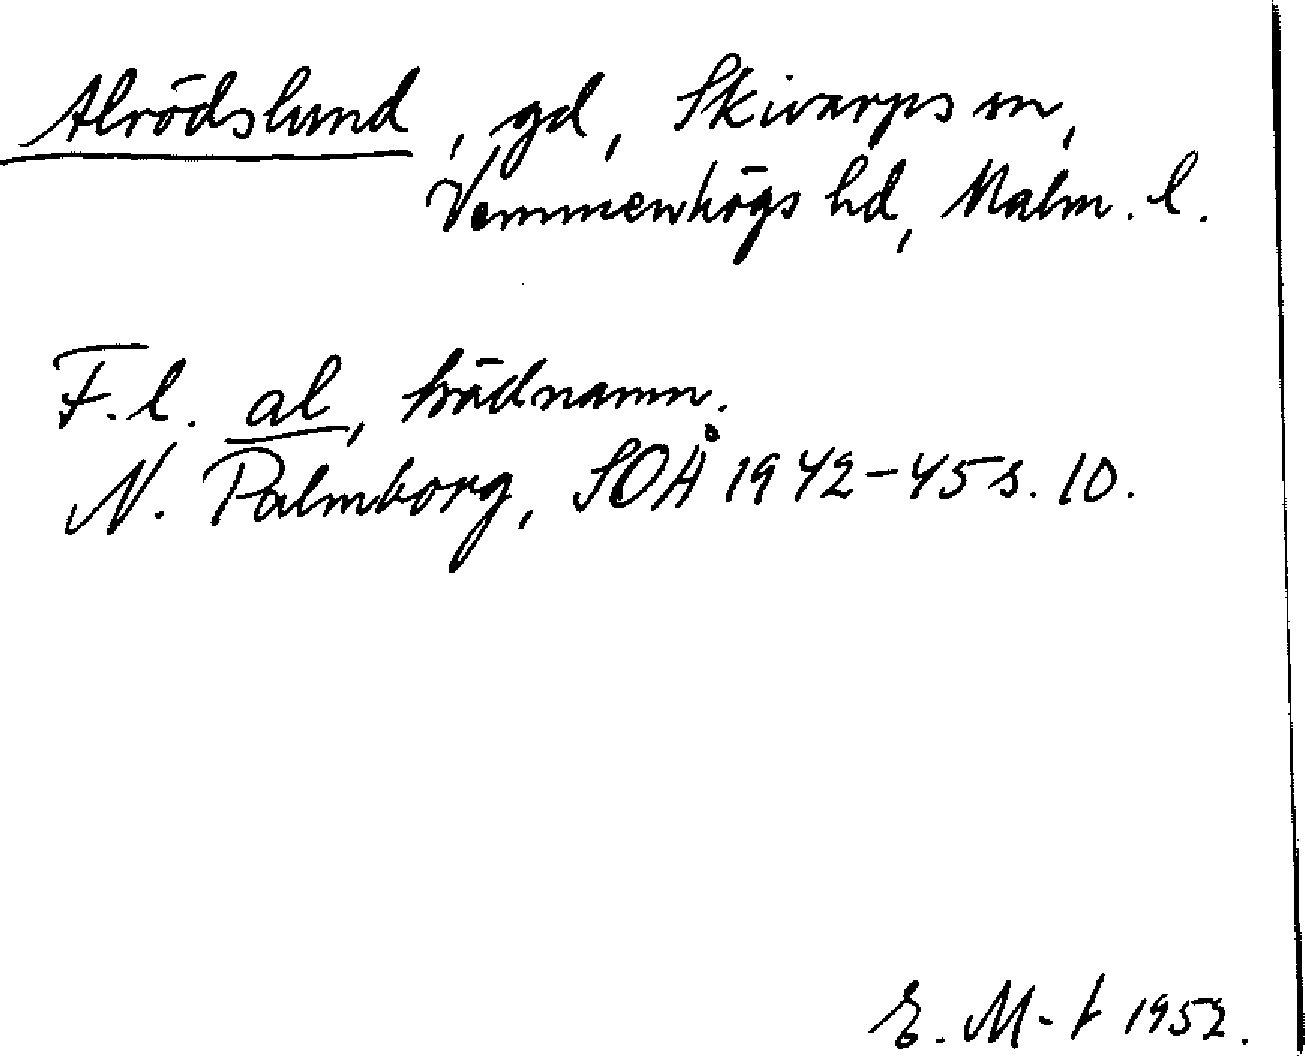 Alrödslund, gd, Skivarps sn,
Vemmenhögs hd, Malm. l.
F. l. al, trädnamn.
N. Palmborg, SOÅ 1942-45 s. 10.
E. M-t 1952.